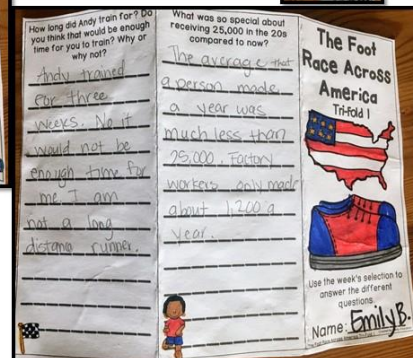 How long did Andy train for? Do
you think that would be enough
time for you to train? Why or
why not?
Andy trained
for three
weeks. No it
would not be
enough time for
me. I am
not a long
distance runner.
What was so special about
receiving 25,000 in the 20s
compared to now?
The average that
a person made
a year was
much less than
25,000. Factory
workers only made
about 1,200 a
year.
The Foot
Race Across
America
Tri-Fold 1
Use the week's selection to
answer the different
questions.
Name: Emily B.